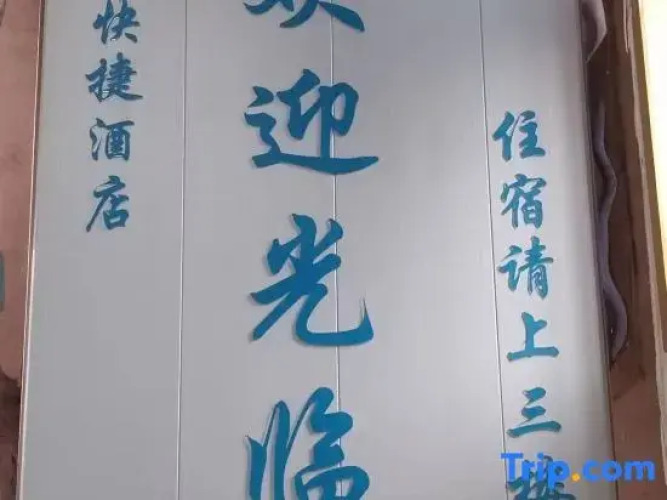 快捷酒店
欢迎光临
住宿请上三楼
Trip.com